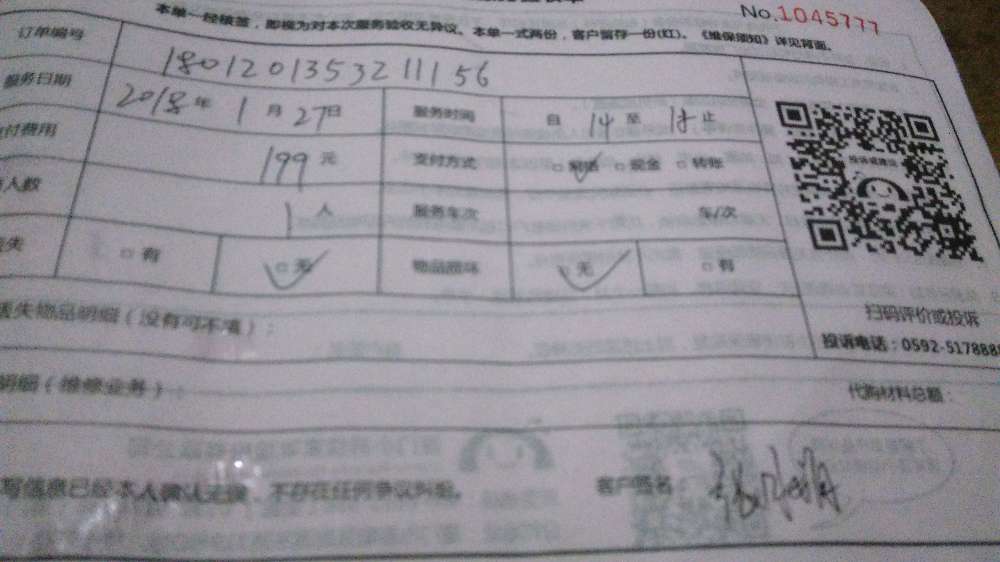 No.1045777
本单一经核签，即视为对本次服务验收无异议。本单一式两份，客户留存一份(红)。《维保须知》详见背面。
订单编号 18012013532 11156
服务日期 2018年 1月 27日 服务时间 自 14 至 18 止
付费用 199 元 支付方式 □ □ 现金 □ 转账
人数 1 人 服务车次 车/次
失 □ 有 □ 无 物品损坏 □ 无 □ 有
投诉或建议
扫码评价或投诉
投诉电话：0592-5178888
丢失物品明细（没有可不填）：
明细（维修业务）： 代购材料总额：
写信息已经本人确认无误，不存在任何争议纠纷。 客户签名：